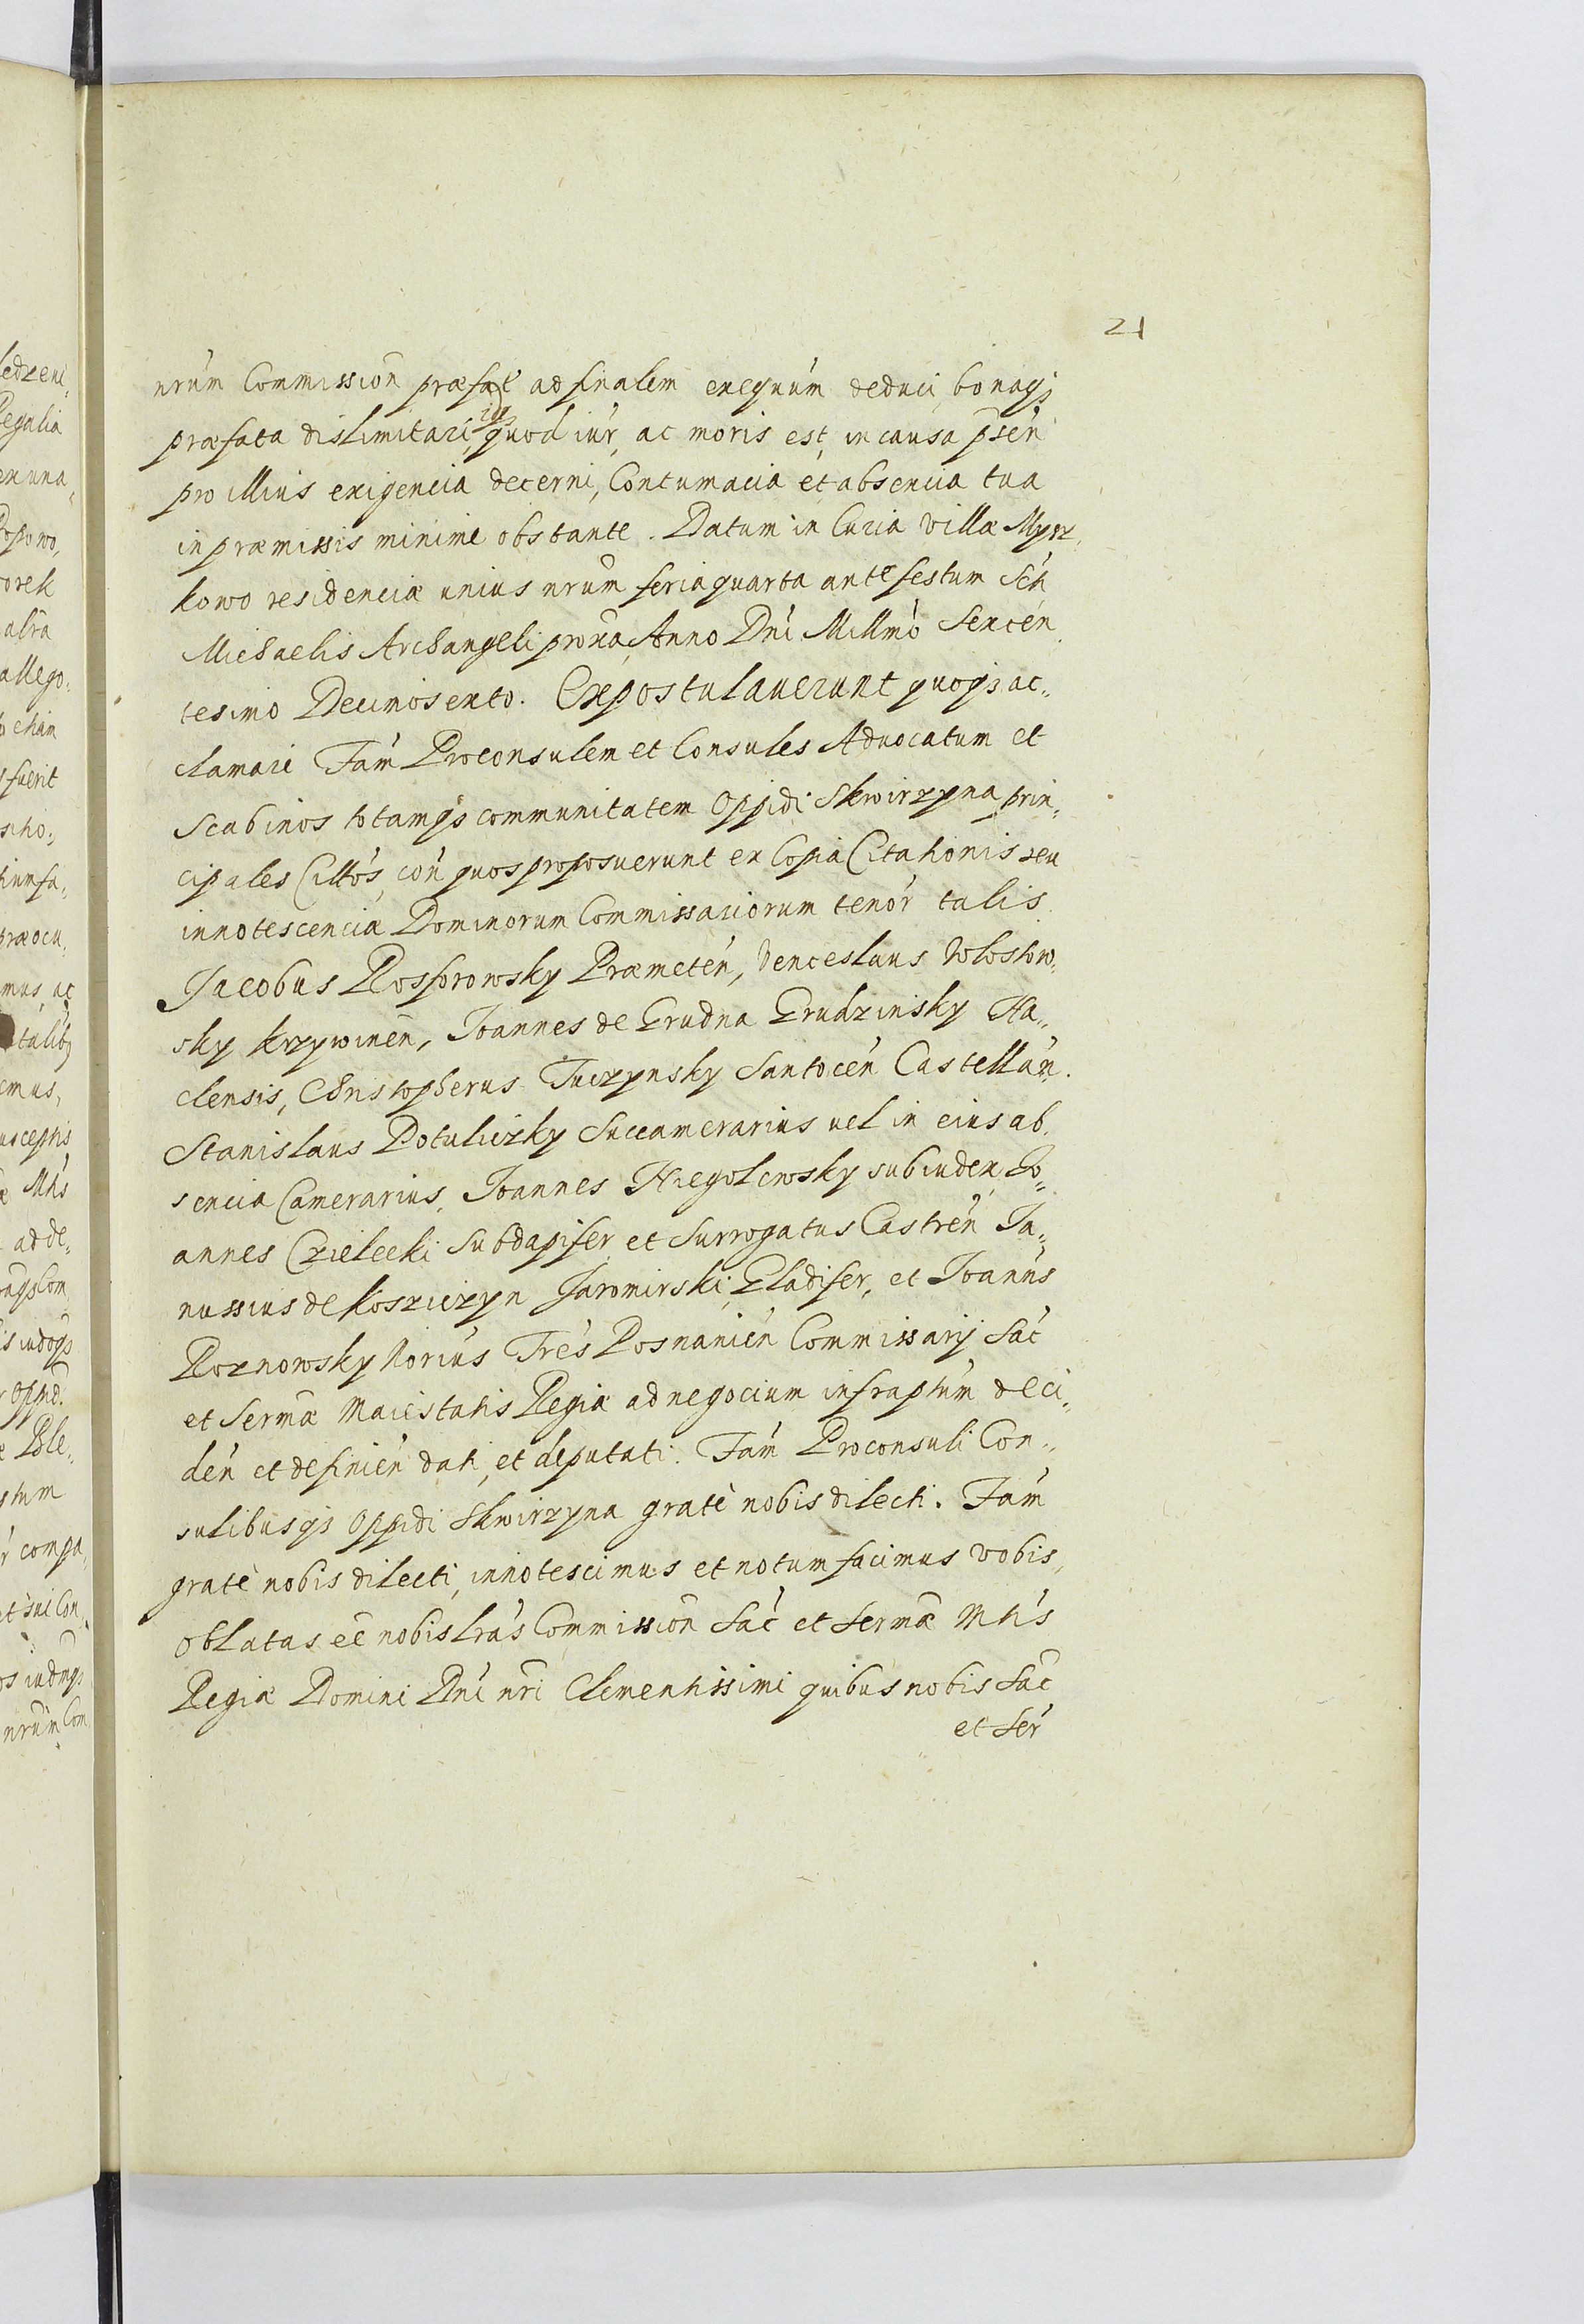 21
nrum Commission præfate ad finalem exequum deduci, bonaqȝ
præfata dislimitari, idqȝ quod iur, ac moris est, in causa psen
pro illius exigencia decerni, Contumacia et absencia tua
in præmissis minime obstante. Datum in Curia villæ Myrz,
kowo residenciæ unius nrum feria quarta ante festum Sch
Michaelis Archangeli proxa, Anno Dni Millmo Sexcen
tesimo Decimosexto. Expostulaverunt quoqȝ ac„
clamari Fam Proconsulem et Consules Advocatum et
Scabinos totamqȝ communitatem Oppidi Skwirzyna prin„
cipales Cittos, con quos proposuerunt ex Copia Citationis seu
innotescenciæ Dominorum Commissariorum tenor talis
Jacobus Rosproowsky Præmeten, Venceslaus
sky Krzywinen, Joannes de Grudna Grudzinsky Na„
clensis, Christopherus Tuczynsky Santocen Castellan.
Stanislaus Potuliczky Succamerarius vel in eius ab„
sencia Camerarius, Joannes Niegolewsky subiudex Jo„
annes Czielecki Subdapifer et Surrogatus Castren Ja„
nussius de Kosziczyn Jaromirski, Gladifer, et Joannes
Roznowsky Norius Tres Posnanien Commissarij Sac
et Serma Maiestatis Regiæ ad negocium infraptum deci„
den et definien dati, et deputati. Fam Proconsuli Con„
sulibusqȝ Oppidi Skwirzyna grate nobis dilecti. Fam
grate nobis dilecti, innotescimus et notum facimus vobis,
Oblatas eē nobis Lras Commission Sac et Sermæ Mtis
Regiæ Domini Dni nri Clementissimi quibus nobis Sac
et Ser